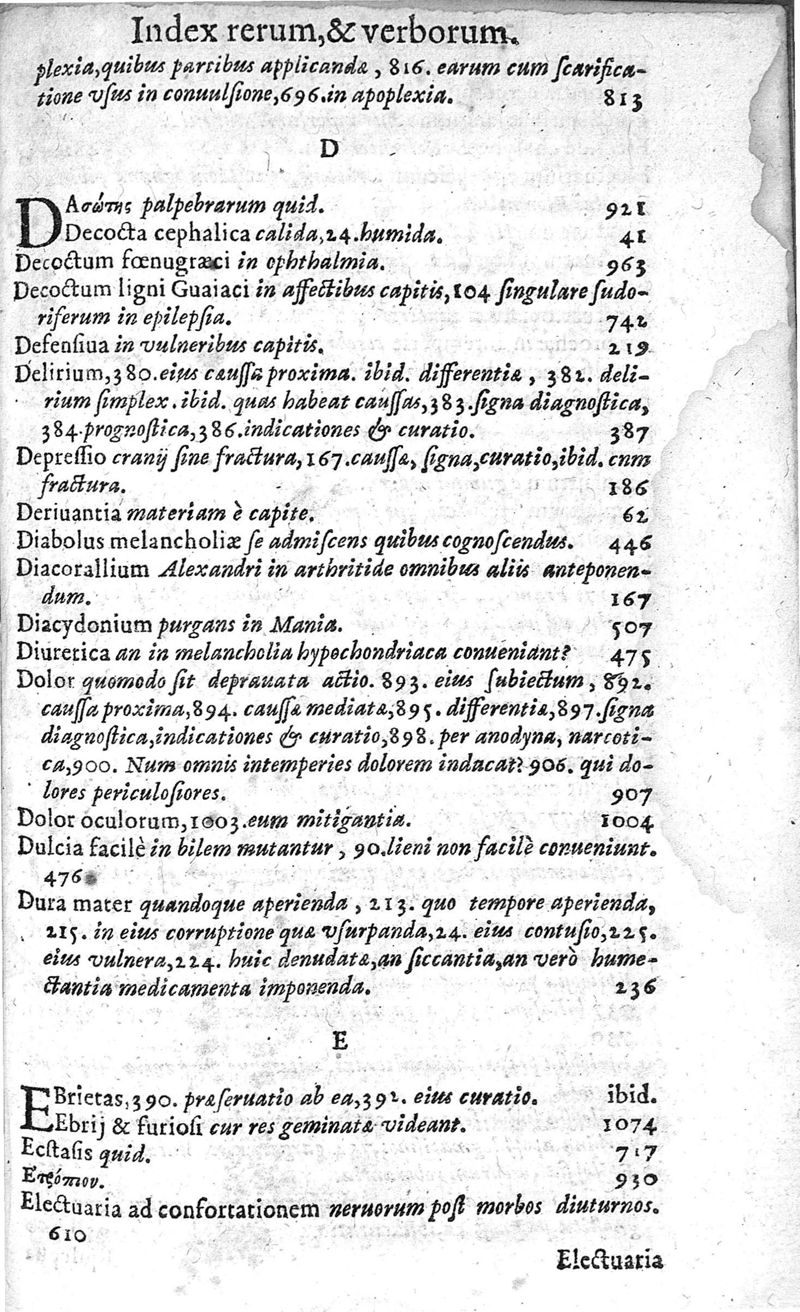 Index rerum, & verborum.
plexia, quibus partibus applicandæ, 816. earum cum ſcarifica-
tione vſus in conuulſione, 696. in apoplexia. 813
D
DAσώτης palpebrarum quid. 921
Decocta cephalica calida, 24. humida. 41
Decoctum fœnugræci in ophthalmia. 963
Decoctum ligni Guaiaci in affectibus capitis, 104 ſingulare ſudo-
riferum in epilepſia. 742
Defenſiua in vulneribus capitis. 219
Delirium, 380. eius cauſſa proxima. ibid. differentiæ, 382. deli-
rium ſimplex. ibid. quas habeat cauſſas, 383. ſigna diagnoſtica,
384. prognoſtica, 386. indicationes & curatio. 387
Depreſſio cranij ſine fractura, 167. cauſſæ, ſigna, curatio, ibid. cnm
fractura. 186
Deriuantia materiam è capite. 62
Diabolus melancholiæ ſe admiſcens quibus cognoſcendus. 446
Diacorallium Alexandri in arthritide omnibus aliis anteponen-
dum. 167
Diacydonium purgans in Mania. 507
Diuretica an in melancholia hypochondriaca conueniant? 475
Dolor quomodo ſit deprauata actio. 893. eius ſubiectum, 892.
cauſſa proxima, 894. cauſſæ mediatæ, 895. differentiæ, 897. ſigna
diagnoſtica, indicationes & curatio, 898. per anodyna, narcoti-
ca, 900. Num omnis intemperies dolorem inducat? 906. qui do-
lores periculoſiores. 907
Dolor oculorum, 1003. eum mitigantia. 1004
Dulcia facilè in bilem mutantur, 90. lieni non facilè conueniunt.
476
Dura mater quandoque aperienda, 213. quo tempore aperienda,
215. in eius corruptione quæ vſurpanda, 24. eius contuſio, 225.
eius vulnera, 224. huic denudatæ, an ſiccantia, an verò hume-
ctantia medicamenta imponenda. 236
E
EBrietas, 390. præſeruatio ab ea, 392. eius curatio. ibid.
Ebrij & furioſi cur res geminatæ videant. 1074
Ecſtaſis quid. 717
Ετρόπιον. 930
Electuaria ad confortationem neruorum poſt morbos diuturnos.
610
Electuaria